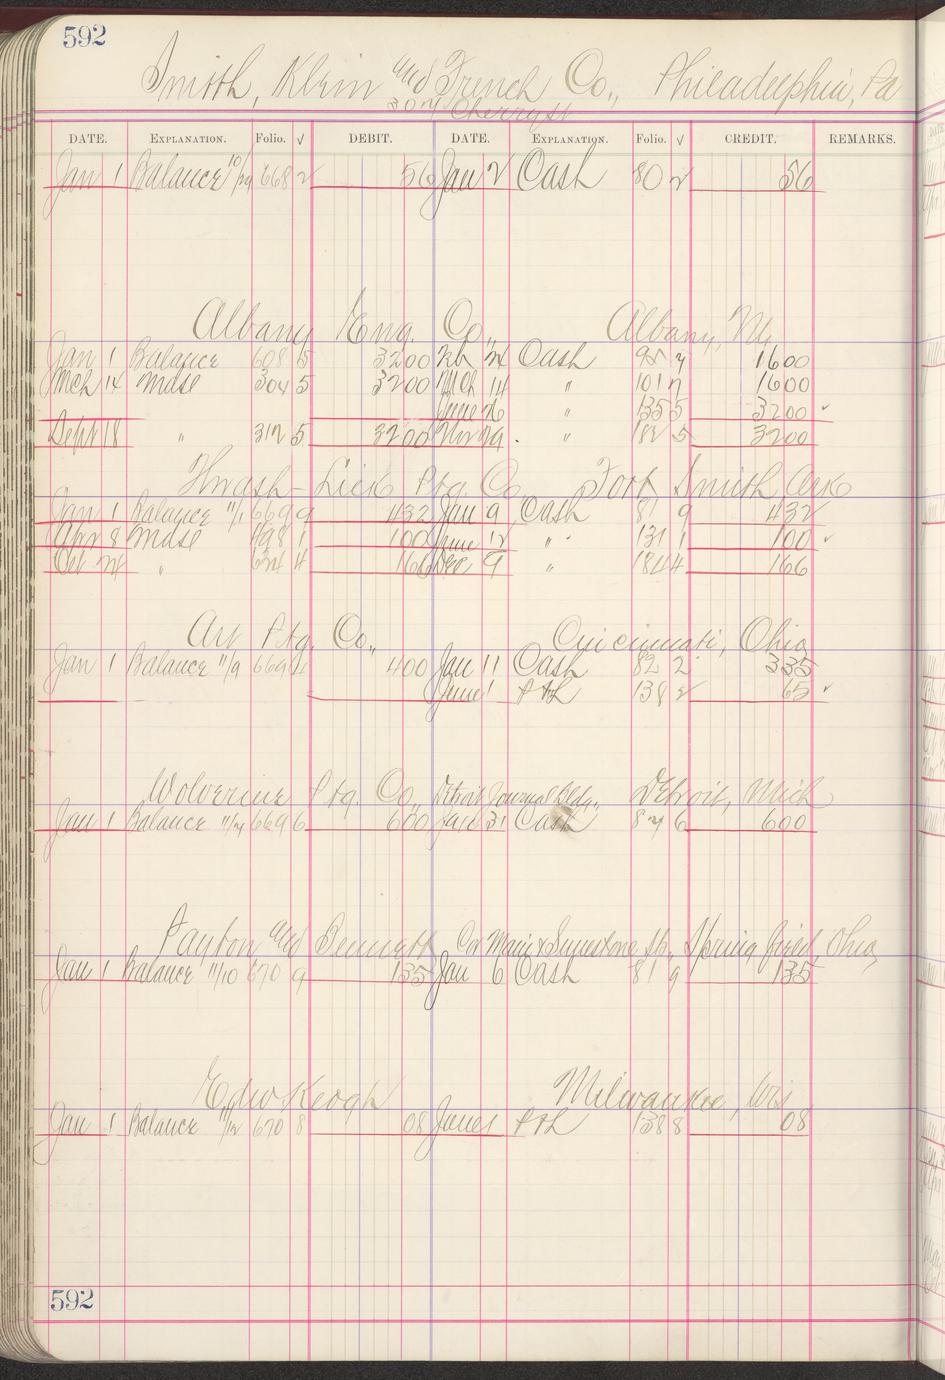 592
Smith, Klein and French Co., Philadelphia, Pa
3047 Cherry St
DATE. EXPLANATION. Folio. √ DEBIT. DATE. EXPLANATION. Folio. √ CREDIT. REMARKS.
Jan 1 Balance 10/29 668 2 56 Jan 2 Cash 80 2 56
Albany Eng. Co., Albany, Ny
Jan 1 Balance 608 5 3200 24 Cash 7 1600
Mch 14 Mdse 304 5 3200 Mch 14 " 101 7 1600
June 26 " 135 5 3200 ✓
Sept 18 " 312 5 3200 Nov 29 . " 182 5 3200
Thrash-Lick Ptg. Co. Fort Smith, Ark
Jan 1 Balance 11/1 669 9 432 Jan 9 Cash 81 9 432
Apr 8 Mdse 498 1 100 June 12 " 131 1 100 ✓
Oct 24 " 634 4 166 Dec 9 " 184 4 166
Art Ptg. Co., Cincinnati, Ohio
Jan 1 Balance 11/9 669 2 400 Jan 11 Cash 82 2 335
June 1 P & L 138 2 65 ✓
Wolverine Ptg. Co., Detroit Journal Bldg., Detroit, Mich
Jan 1 Balance 11/24 669 6 600 Jan 31 Cash 87 6 600
Payton and Bennett Cor Main & Limestone St., Springfield, Ohio
Jan 1 Balance 11/10 670 9 135 Jan 6 Cash 81 9 135
Edw Keogh Milwaukee, Wis
Jan 1 Balance 11/12 670 8 08 June 1 P & L 138 8 08
592